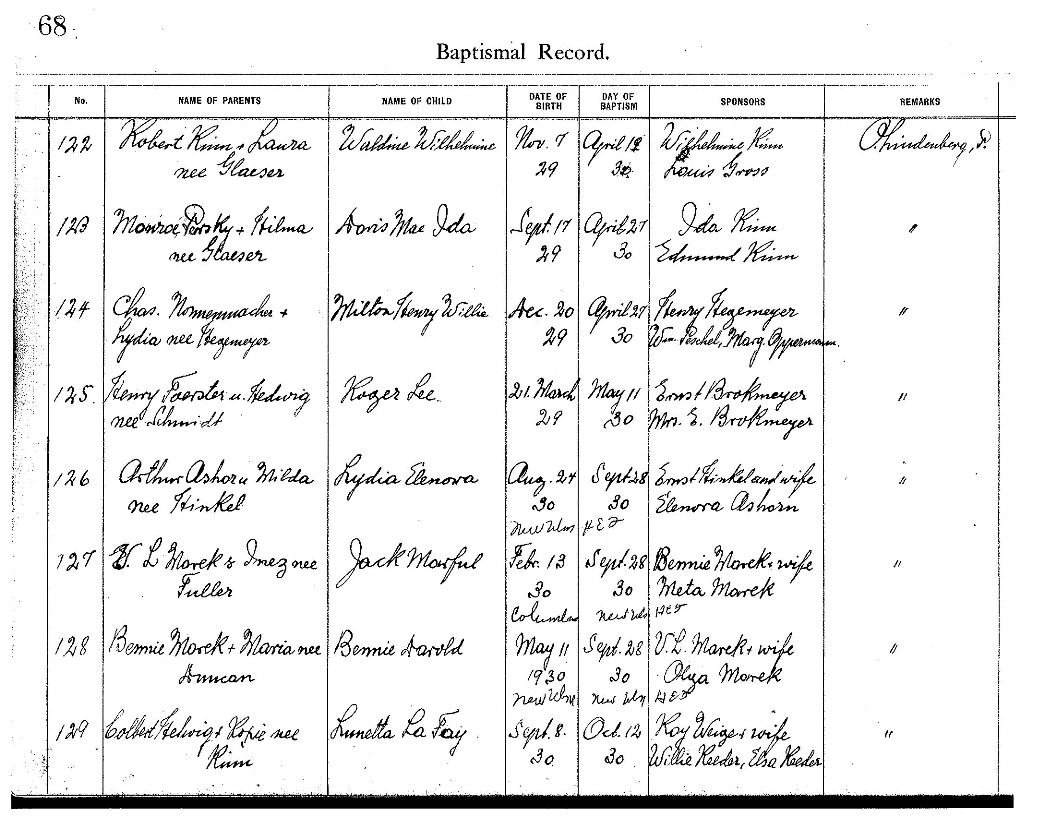 68
Baptismal Record.
No. NAME OF PARENTS NAME OF CHILD DATE OF BIRTH DAY OF BAPTISM SPONSORS REMARKS
122 Robert Rinn & Laura Waldine Wilhelmine Nov. 7 April 12 Wilhelmine Rinn Ohindenberg, P.
nee Glaeser 29 30 Louis Gross
123 Monroe Persky + Hilma Doris Mae Ida Sept. 17 April 27 Ida Rinn "
nee Glaeser 29 30 Edmund Rinn
124 Chas. Nonnenmacher + Milton Henry Willie Dec. 20 April 27 Henry Hegemeyer "
Lydia nee Hegemeyer 29 30 Wm. Peschel, Marg. Oppermann.
125. Henry Foerster u. Hedwig Roger Lee 21. March May 11 Ernst Brokmeyer "
nee Schmidt 29 30 Mrs. E. Brokmeyer
126 Arthur Ashorn Milda Lydia Elenora Aug. 24 Sept 28 Ernst Hinkel and wife "
nee Hinkel 30 30 Elenora Ashorn
New Ulm HEF
127 V. L Marek & Inez nee Jack Marful Febr. 13 Sept. 28 Bennie Marek + wife "
Fuller 30 30 Meta Marek
Columbus New Ulm HEF
128 Bennie Marek + Maria nee Bennie Darold May 11 Sept. 28 V. L. Marek + wife "
Duncan 1930 30 Olga Marek
New Ulm New Ulm HEF
129 Colbert Helwig + Ropie nee Lunetta La Fay Sept. 8. Oct. 12 Ray Weige + wife "
Rinn 30 30 Willie Reeder, Elsa Reeder